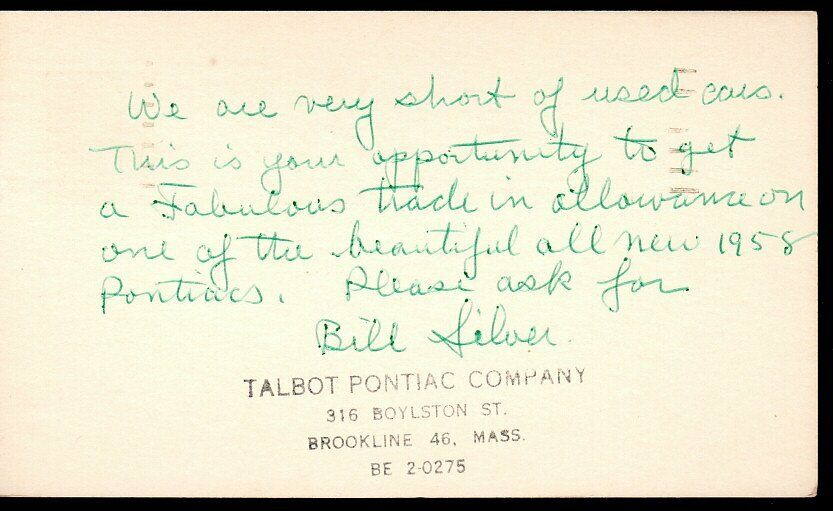 We are very short of used cars.
This is your opportunity to get
a Fabulous trade in allowance on
one of the beautiful all new 1958
Pontiacs. Please ask for
Bill Silver.
TALBOT PONTIAC COMPANY
316 BOYLSTON ST.
BROOKLINE 46, MASS.
BE 2-0275